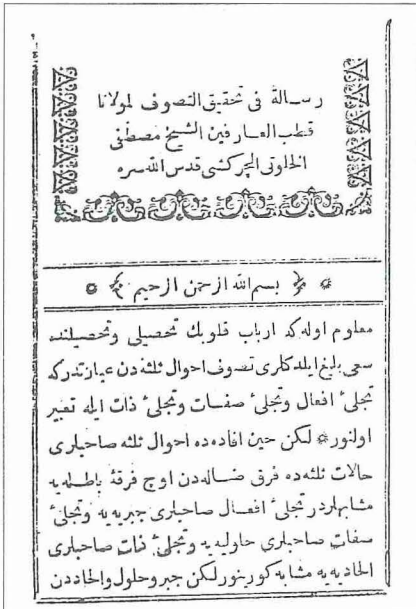 رسالة فى تحقيق التصوف لمولانا
قطب العارفين الشيخ مصطفى
الخلوتى الچركشى قدس الله سره
﴿ بسم الله الرحمن الرحيم ﴾
معلوم اوله كه ارباب قلوبك تحصيلى وتحصيلنده
سعى بليغ ايلدكلرى تصوف احوال ثلثه دن عبارتدركه
تجلىء افعال وتجلىء صفات وتجلىء ذات ايله تعبير
اولنور * لكن حين افاده ده احوال ثلثه صاحبلرى
حالات ثلثه ده فرق ضاله دن اوچ فرقهٔ باطله يه
مشابهلردر تجلىء افعال صاحبلرى جبريه يه وتجلىء
صفات صاحبلرى حلوليه يه وتجلىء ذات صاحبلرى
اتحاديه يه مشابه كورينور لكن جبر وحلول واتحاددن